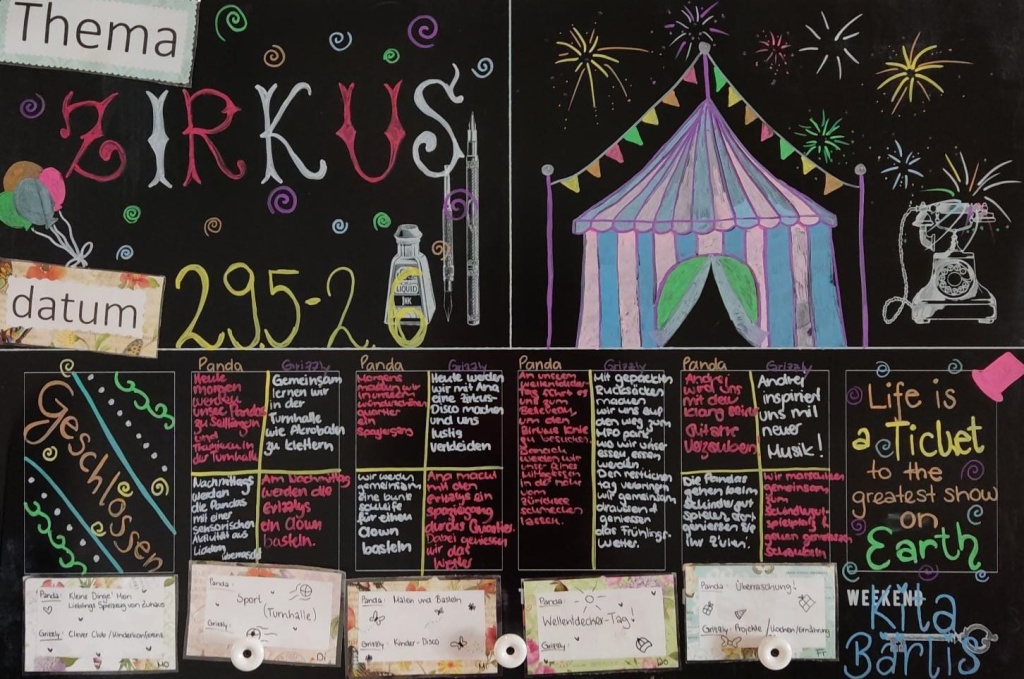 Thema
ZIRKUS
LIQUID
INK
datum
29.5-2.6
Geschlossen
Panda
Grizzly
Heute
morgen
werden
unsere Pandas
zu Seiltänzer
und
Turnhalle
Gemeinsam
lernen wir
in der
Turnhalle
wie Acrobaten
zu klettern
Nachmittags
werden
die Pandas
mit einer
sensorischen
Aktivität aus
überrascht
Am Nachmittag
werden die
Grizzlys
ein Clown
basteln.
Panda
Grizzly
Morgens
machen wir
in unserem
quartier
ein
Spaziergang
Heute werden
wir mit Ana
eine Zirkus-
Disco machen
und uns
lustig
verkleiden
wir werden
gemeinsam
eine bunte
schleife
für einen
Clown
basteln
Ana macht
mit den
Grizzlys ein
spaziergang
durchs Quartier.
Dabei geniessen
wir das
Wetter
Panda
Grizzly
An unserem
Wellentdecher
Tag fährt es
uns zum
um den
Zirkus Knie
zu besuchen.
Danach
werden wir
unser feines
Mittagessen
in der nähe
vom
Zürichsee
lassen.
Mit gepackten
Rucksäcken
machen
wir uns auf
den weg zum
MFO park
wo wir unser
essen essen
werden
Den restlichen
tag verbringen
wir gemeinsam
draussen &
geniessen
das Frühlings-
Wetter.
Panda
Grizzly
Andrei
wird uns
mit dem
Klang seiner
Gitarre
verzaubern
Andrei
inspiriert
uns mit
neuer
Musik!
Die Pandas
gehen beim
spielen &
geniessen die
Wir marschieren
gemeinsam
zum
spielplatz &
gehen gemeinsam
Schaukeln
Life is
a Ticket
to the
greatest show
on
Earth
Panda: Kleine Dinge! Mein
Lieblings Spielzeug von Zuhause
Grizzly: Clever Club / Kinderkonferenz
Mo
Panda:
Sport
(Turnhalle)
Grizzly:
Di
Panda: Malen und Basteln
Grizzly: Kinder-Disco
Mi
Panda:
Wellentdecher-Tag!
Grizzly:
Do
Panda: Überraschung!
Grizzly: Projekte / Kochen/Ernährung
Fr
WEEKEND
Kita
Bärtis